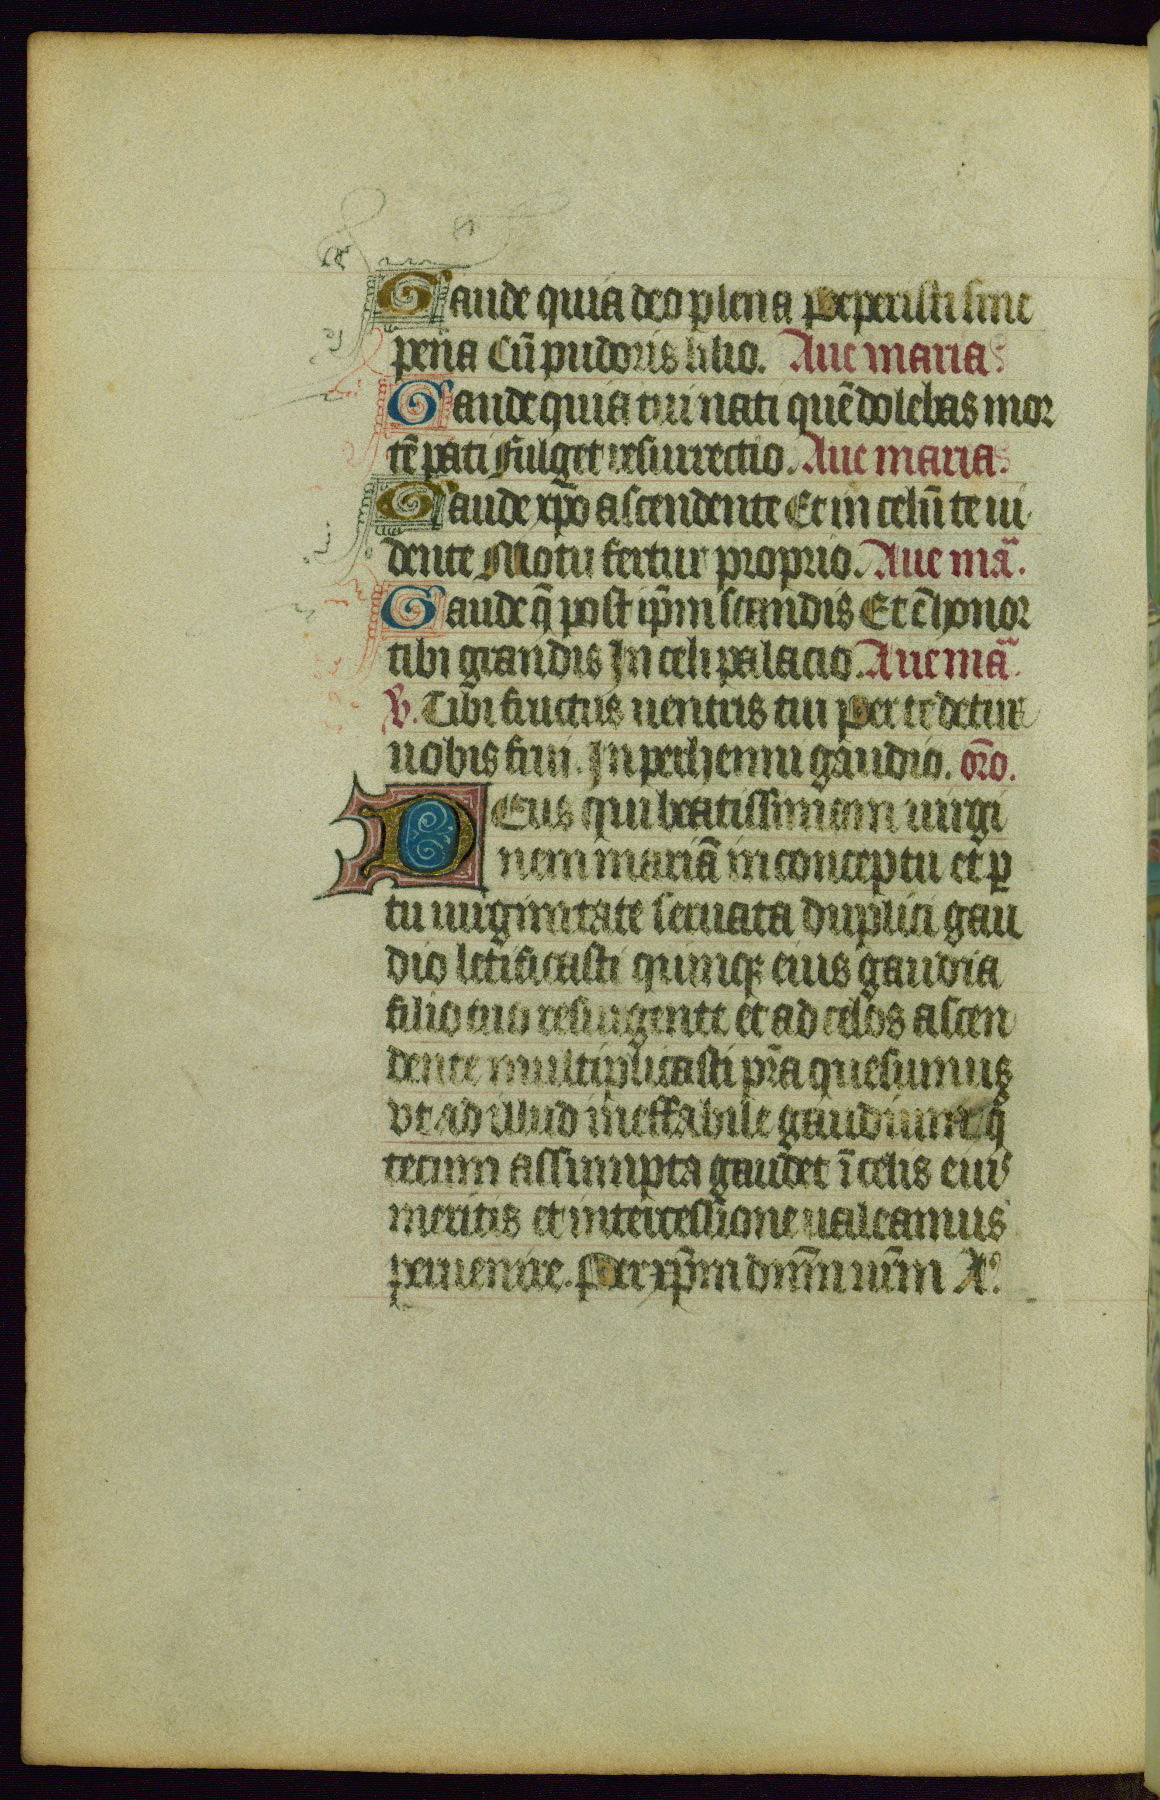 Gaude quia deo plena Peperisti sine
pena Cū pudoris lilio. Aue maria.
Gaude quia tui nati quē dolebas mor
tē pati Fulget resurrectio. Aue maria.
Gaude xp̄o ascendente Et in celū te ui
dente Motu fertur proprio. Aue mā.
Gaude q̄ post ip̄m scandis Et ē honor
tibi grandis In celi palacio. Aue mā.
V. Tibi fructus uentris tui Per te detur
nobis frui. In perhenni gaudio. or̄o.
DEus qui beatissimam uirgi
nem mariā in conceptu et ꝑ
tu uirginitate seruata duplici gau
dio letificasti quinqꝫ eius gaudia
filio tuo resurgente et ad celos ascen
dente multiplicasti pr̄a quesumus
vt ad illud ineffabile gaudium q̄
tecum assumpta gaudet ī celis eius
meritis et intercessione ualeamus
peruenire. Per xp̄m dn̄m nr̄m A.